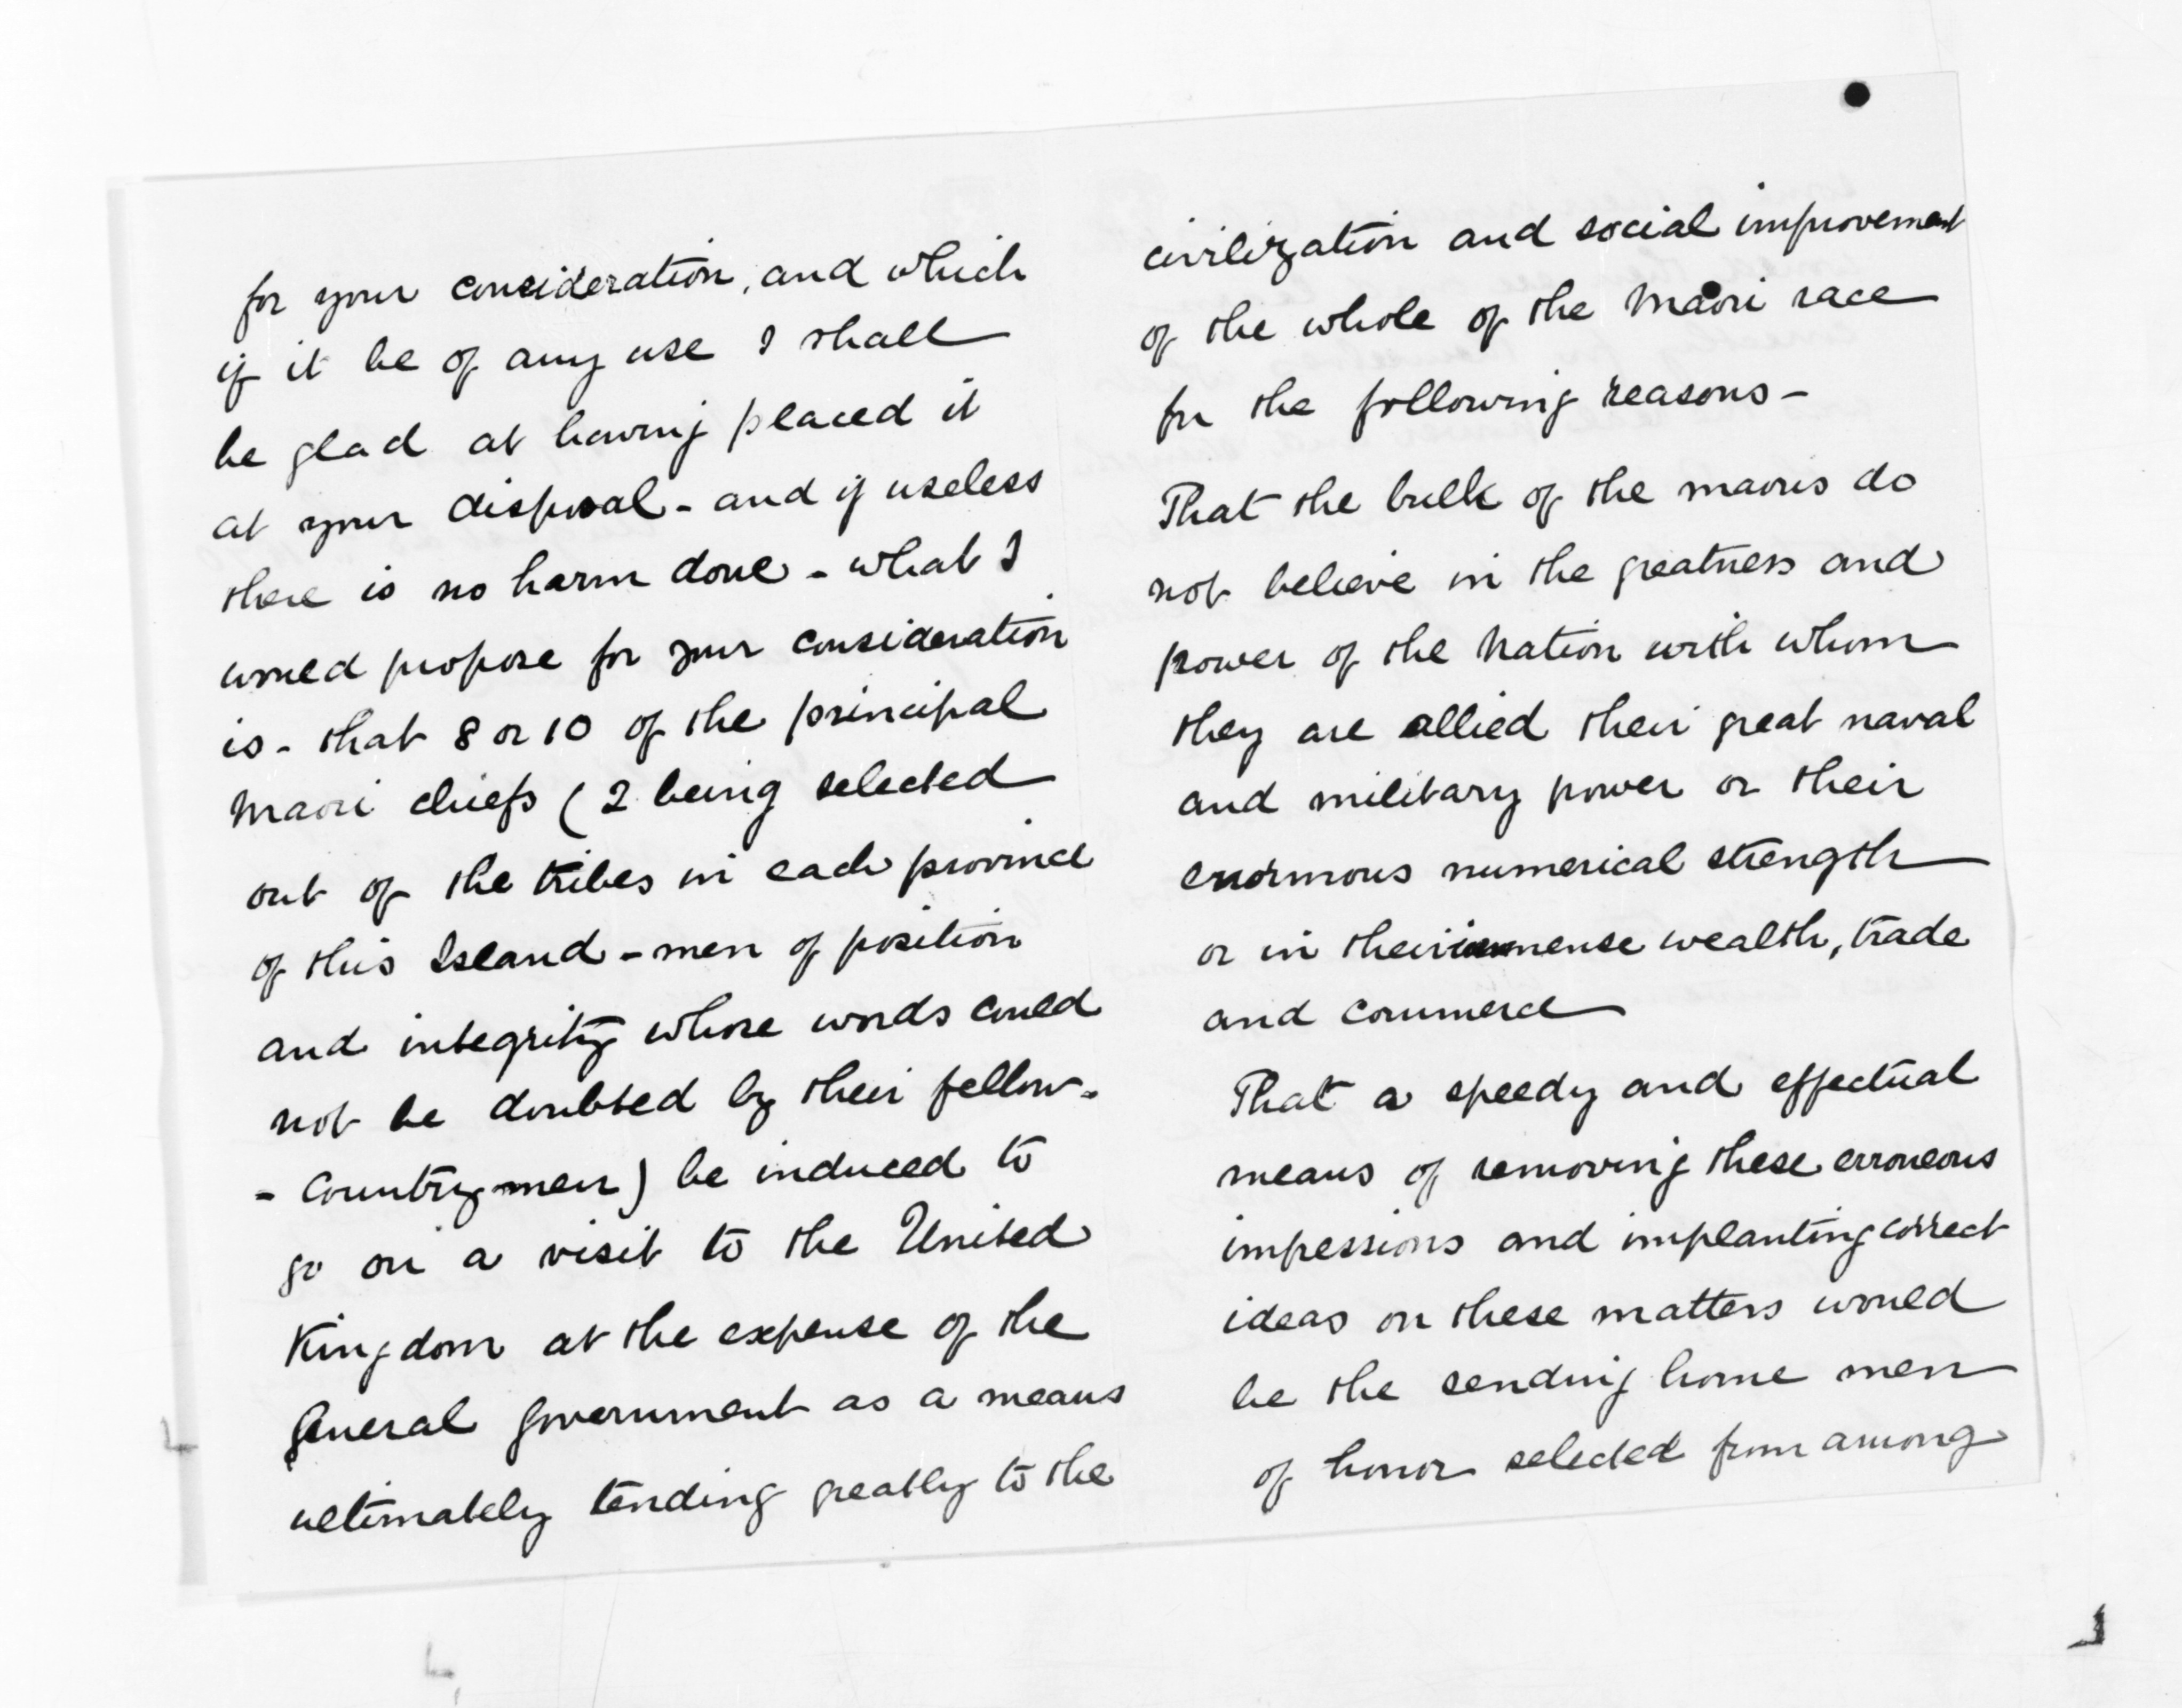 for your consideration, and which
if it be of any use I shall
be glad at having placed it
at your disposal - and if useless
there is no harm done - what I
would propose for your consideration
is - that 8 or 10 of the principal
Maori chiefs (2 being selected
out of the tribes in each province
of this Island - men of position
and integrity whose words could
not be doubted by their fellow-
- countrymen) be induced to
go on a visit to the United
Kingdom at the expense of the
General Government as a means
ultimately tending greatly to the
civilization and social improvement
of the whole of the Maori race
for the following reasons -
That the bulk of the maoris do
not believe in the greatness and
power of the Nation with whom
they are allied their great naval
and military power or their
enormous numerical strength
or in their immense wealth, trade
and commerce
That a speedy and effectual
means of removing these erroneous
impressions and implanting correct
ideas on these matters would
be the sending home men
of honor selected from among